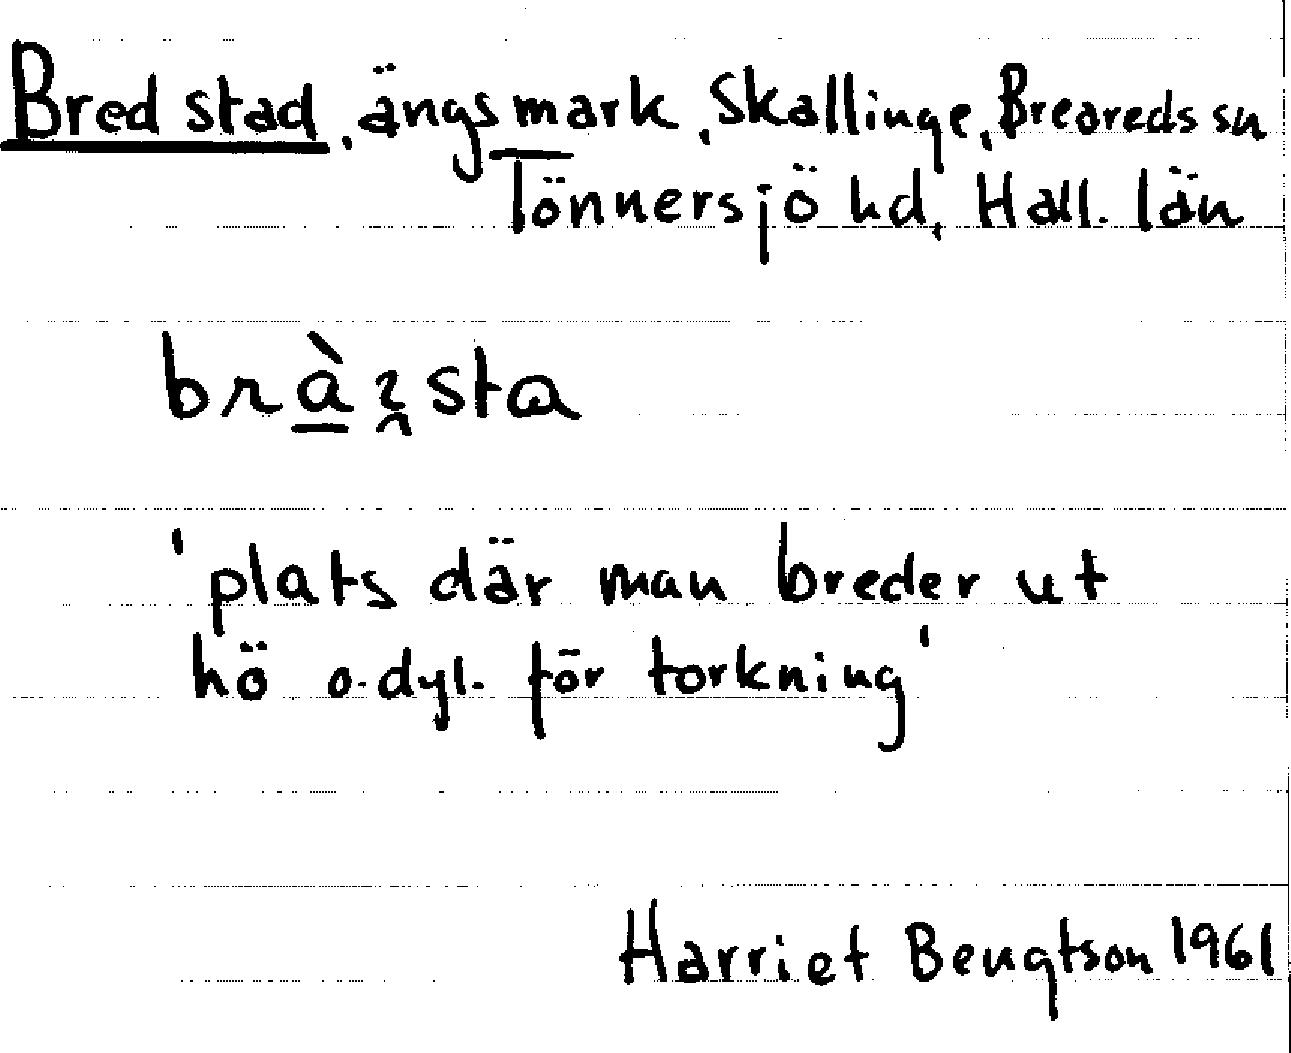 Bredstad, ängsmark, Skallinge, Breareds sn
Tönnersjö hd, Hall. län
'plats där man breder ut
hö o.dyl. för torkning'
Harriet Bengtson 1961